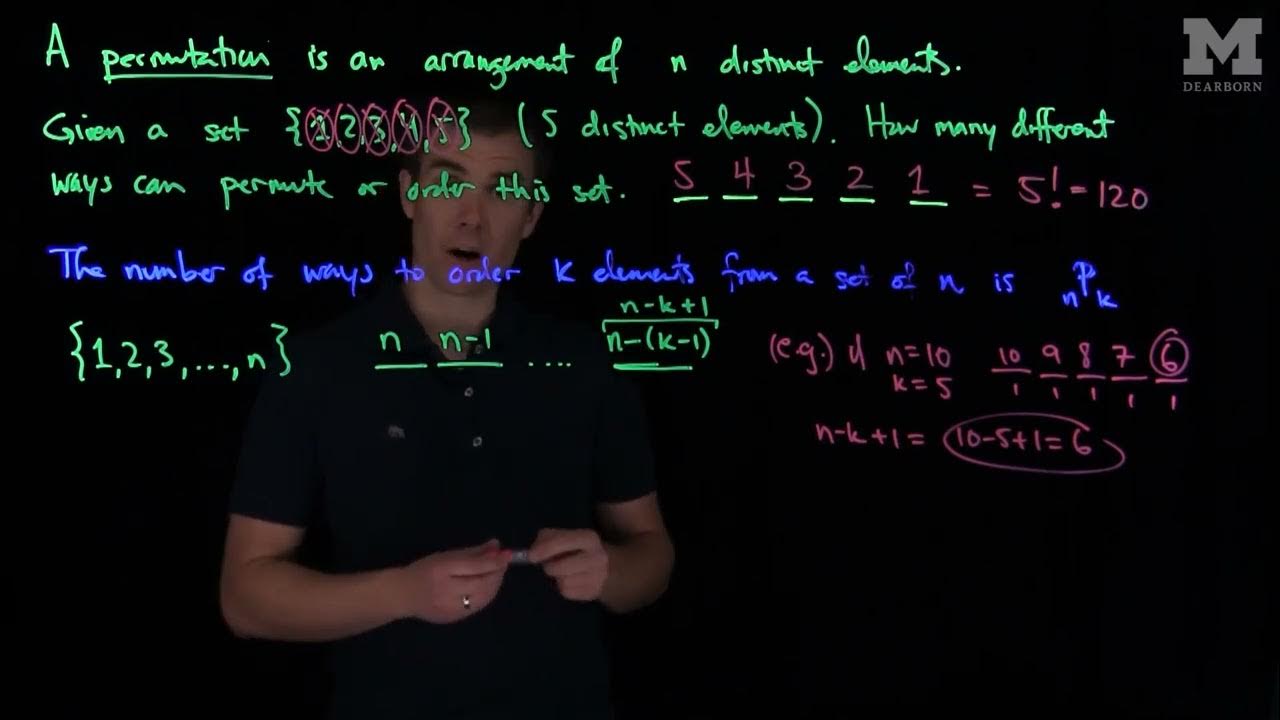 A permutation is an arrangement of n distinct elements.
M
DEARBORN
Given a set {1,2,3,4,5} (5 distinct elements). How many different
ways can permute or order this set. 5 4 3 2 1 = 5! = 120
The number of ways to order k elements from a set of n is nPk
{1,2,3,...,n} n n-1 .... n-(k-1)
n-k+1
(e.g.) if n=10 10 9 8 7 6
k=5 1 1 1 1 1
n-k+1= 10-5+1=6